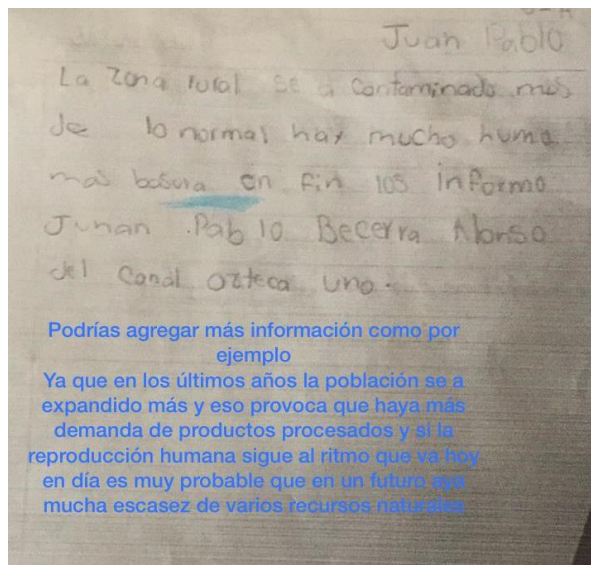 Juan Pablo
La zona rural se a contaminado mas
de lo normal hay mucho humo
mas basura en fin los informo
Junan Pablo Becerra Alonso
del canal azteca uno.
Podrías agregar más información como por
ejemplo
Ya que en los últimos años la población se a
expandido más y eso provoca que haya más
demanda de productos procesados y si la
reproducción humana sigue al ritmo que va hoy
en día es muy probable que en un futuro aya
mucha escasez de varios recursos naturales